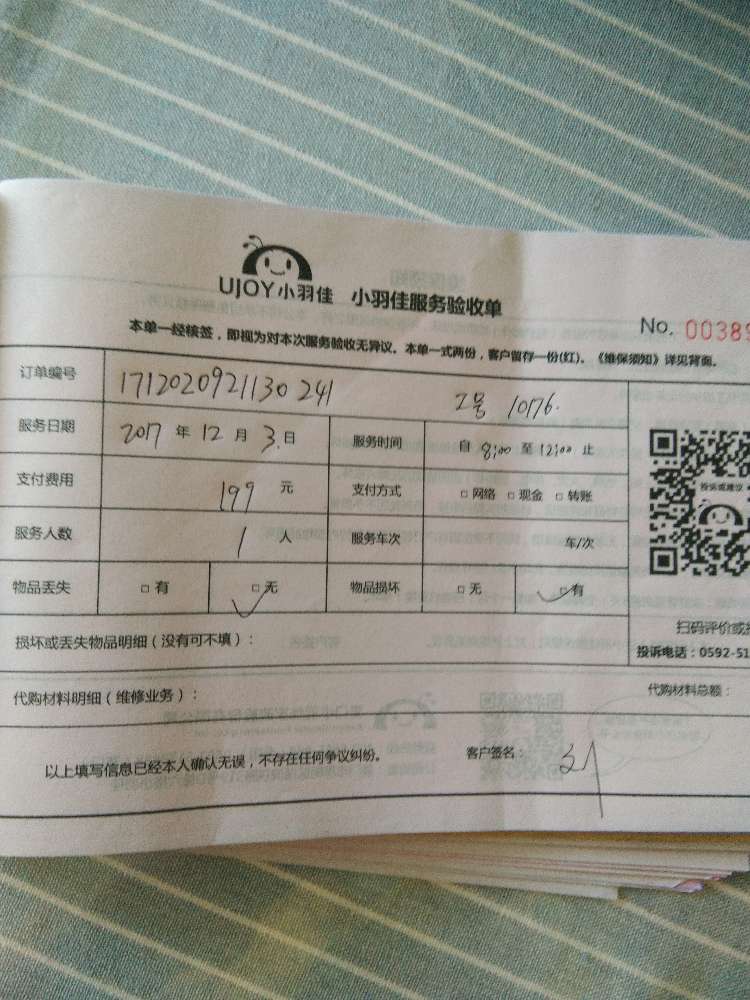 UJOY小羽佳 小羽佳服务验收单
No. 00389
本单一经核签，即视为对本次服务验收无异议。本单一式两份，客户留存一份(红)。《维保须知》详见背面。
订单编号 1712020921130241 工号 10176.
服务日期 2017 年 12 月 3 日 服务时间 自 8:00 至 12:00 止
支付费用 199 元 支付方式 □网络 □现金 □转账
服务人数 1 人 服务车次 车/次
物品丢失 □有 □无 物品损坏 □无 □有
投诉或建议
扫码评价或
损坏或丢失物品明细（没有可不填）：
投诉电话：0592-51
代购材料明细（维修业务）：
代购材料总额：
以上填写信息已经本人确认无误，不存在任何争议纠纷。 客户签名：